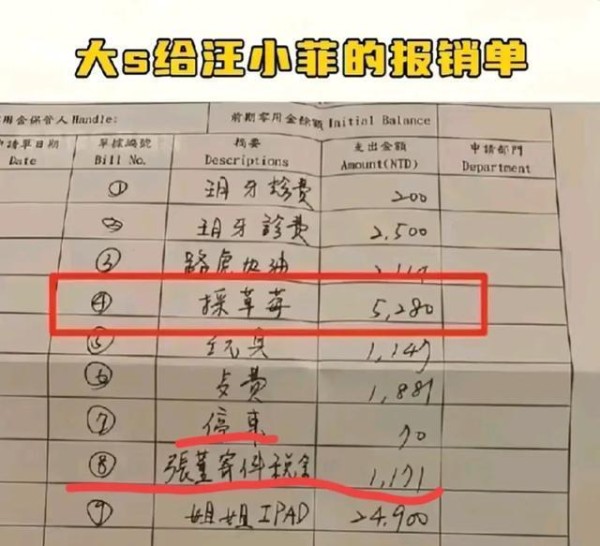 大s给汪小菲的报销单
用金保管人 Handle: 前期零用金餘額 Initial Balance
申請單日期 單據編號 摘要 支出金額 申請部門
Date Bill No. Descriptions Amount(NTD) Department
① 玥牙診費 200
② 玥牙診費 2,500
③ 路虎加油
④ 採草莓 5,280
⑤ 玩具 1,147
⑥ 费 1,881
⑦ 停車 70
⑧ 張蘭寄件税金 1,171
⑨ 姐姐IPAD 24,900